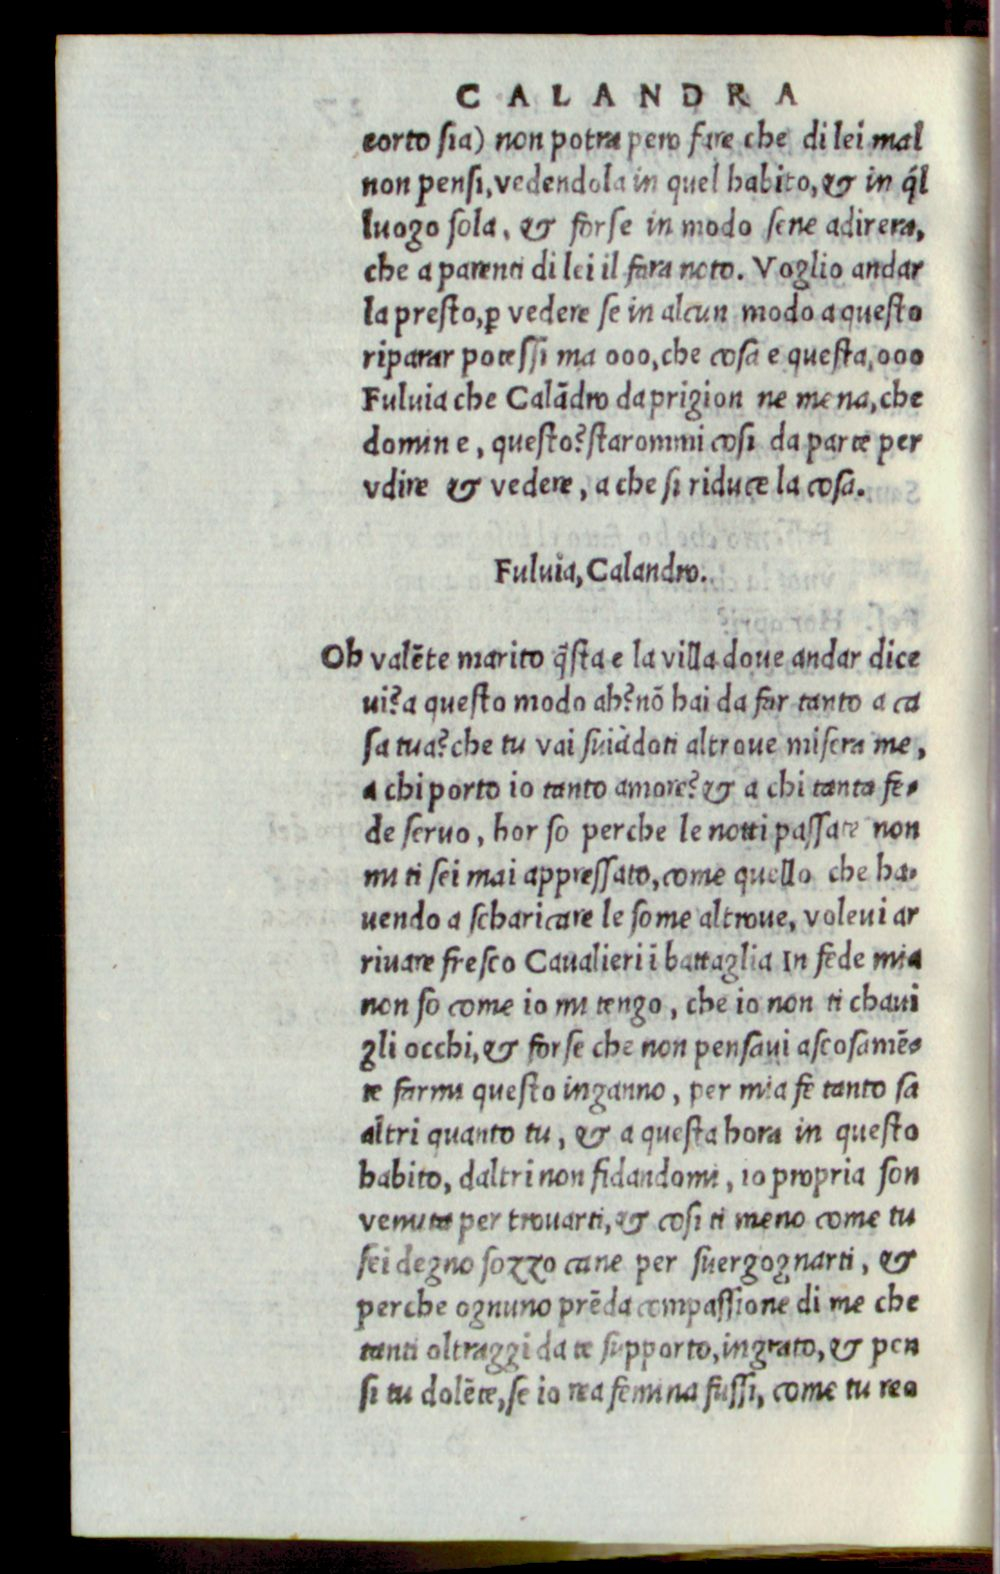 CALANDRA
corto sia) non potra pero fare che di lei mal
non pensi, vedendola in quel habito, & in q̃l
luogo sola, & forse in modo sene adirera,
che a parenti di lei il fara noto. Voglio andar
la presto, ꝑ vedere se in alcun modo a questo
riparar potessi ma ooo, che cosa e questa, ooo
Fuluia che Calãdro da prigion ne mena, che
domin e, questo? starommi cosi da parte per
vdire & vedere, a che si riduce la cosa.
Fuluia, Calandro.
Oh valẽte marito q̃sta e la villa doue andar dice
ui? a questo modo ah? nõ hai da far tanto a ca
sa tua? che tu vai suiãdoti altroue misera me,
a chi porto io tanto amore? & a chi tanta fe-
de seruo, hor so perche le notti passate non
mi ti sei mai appressato, come quello che ha-
uendo a scharicare le some altroue, voleui ar
riuare fresco Caualieri ĩ battaglia In fede mia
non so come io mi tengo, che io non ti chaui
gli occhi, & forse che non pensaui ascosamẽ-
te farmi questo inganno, per mia fe tanto sa
altri quanto tu, & a questa hora in questo
habito, daltri non fidandomi, io propria son
venuta per trouarti, & cosi ti meno come tu
sei degno sozzo cane per suergognarti, &
perche ognuno prẽda compassione di me che
tanti oltraggi da te supporto, ingrato, & pen
si tu dolẽte, se io rea femina fussi, come tu reo